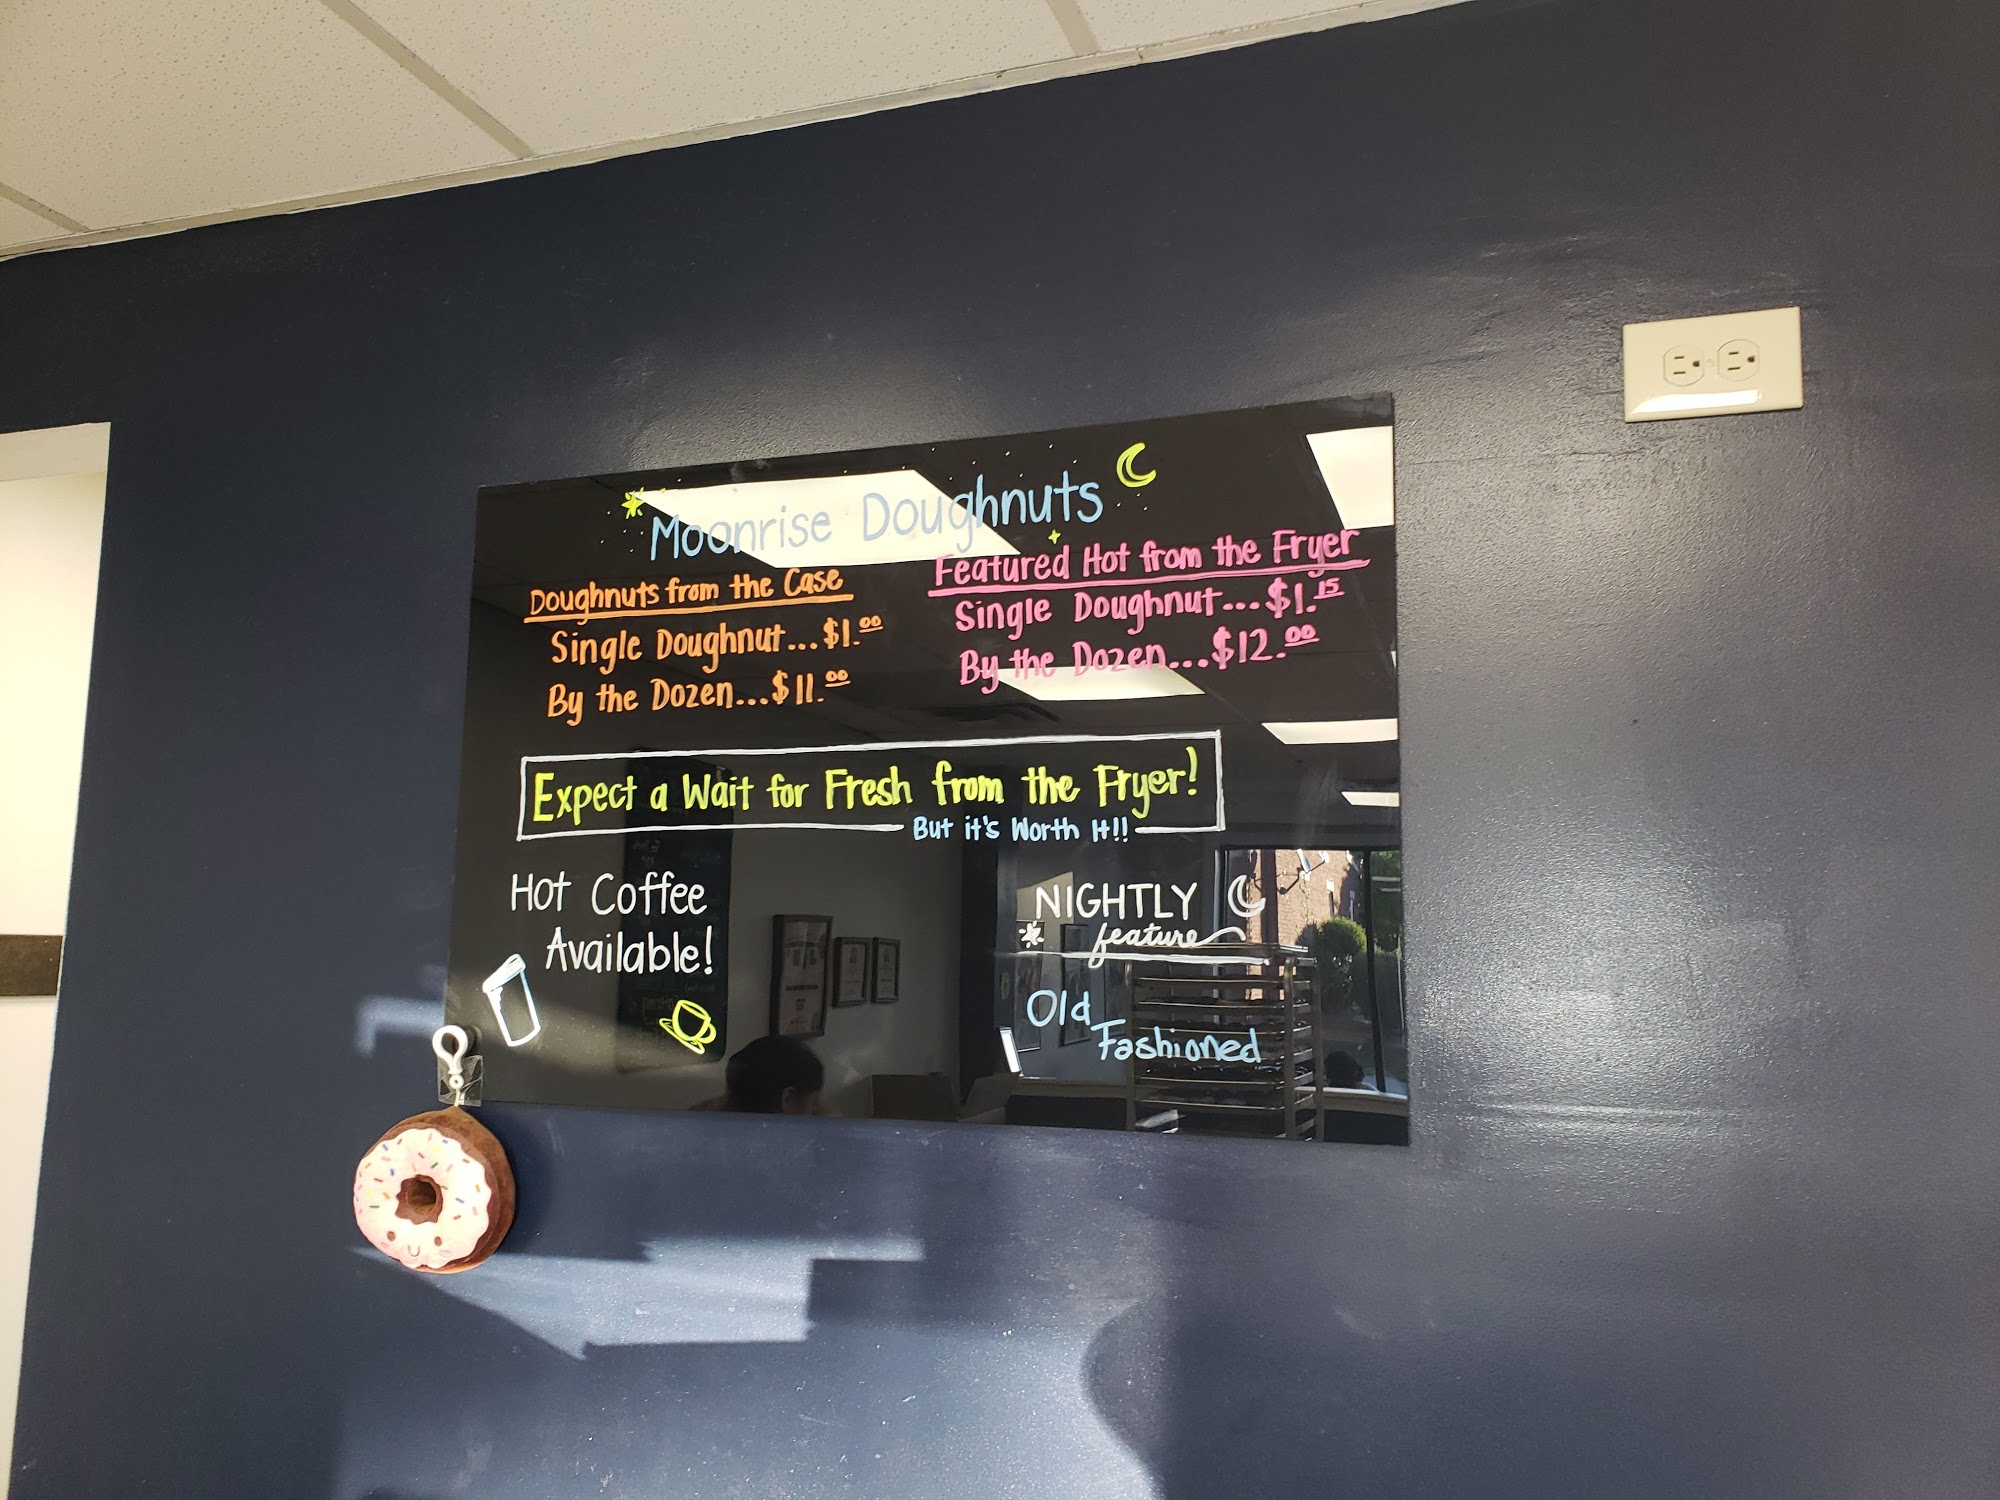 Moonrise Doughnuts
Doughnuts from the Case
Single Doughnut...$1.00
By the Dozen...$11.00
Featured Hot from the Fryer
Single Doughnut...$1.15
By the Dozen...$12.00
Expect a Wait for Fresh from the Fryer!
But it's Worth It!!
Hot Coffee
Available!
NIGHTLY
feature
Old
Fashioned